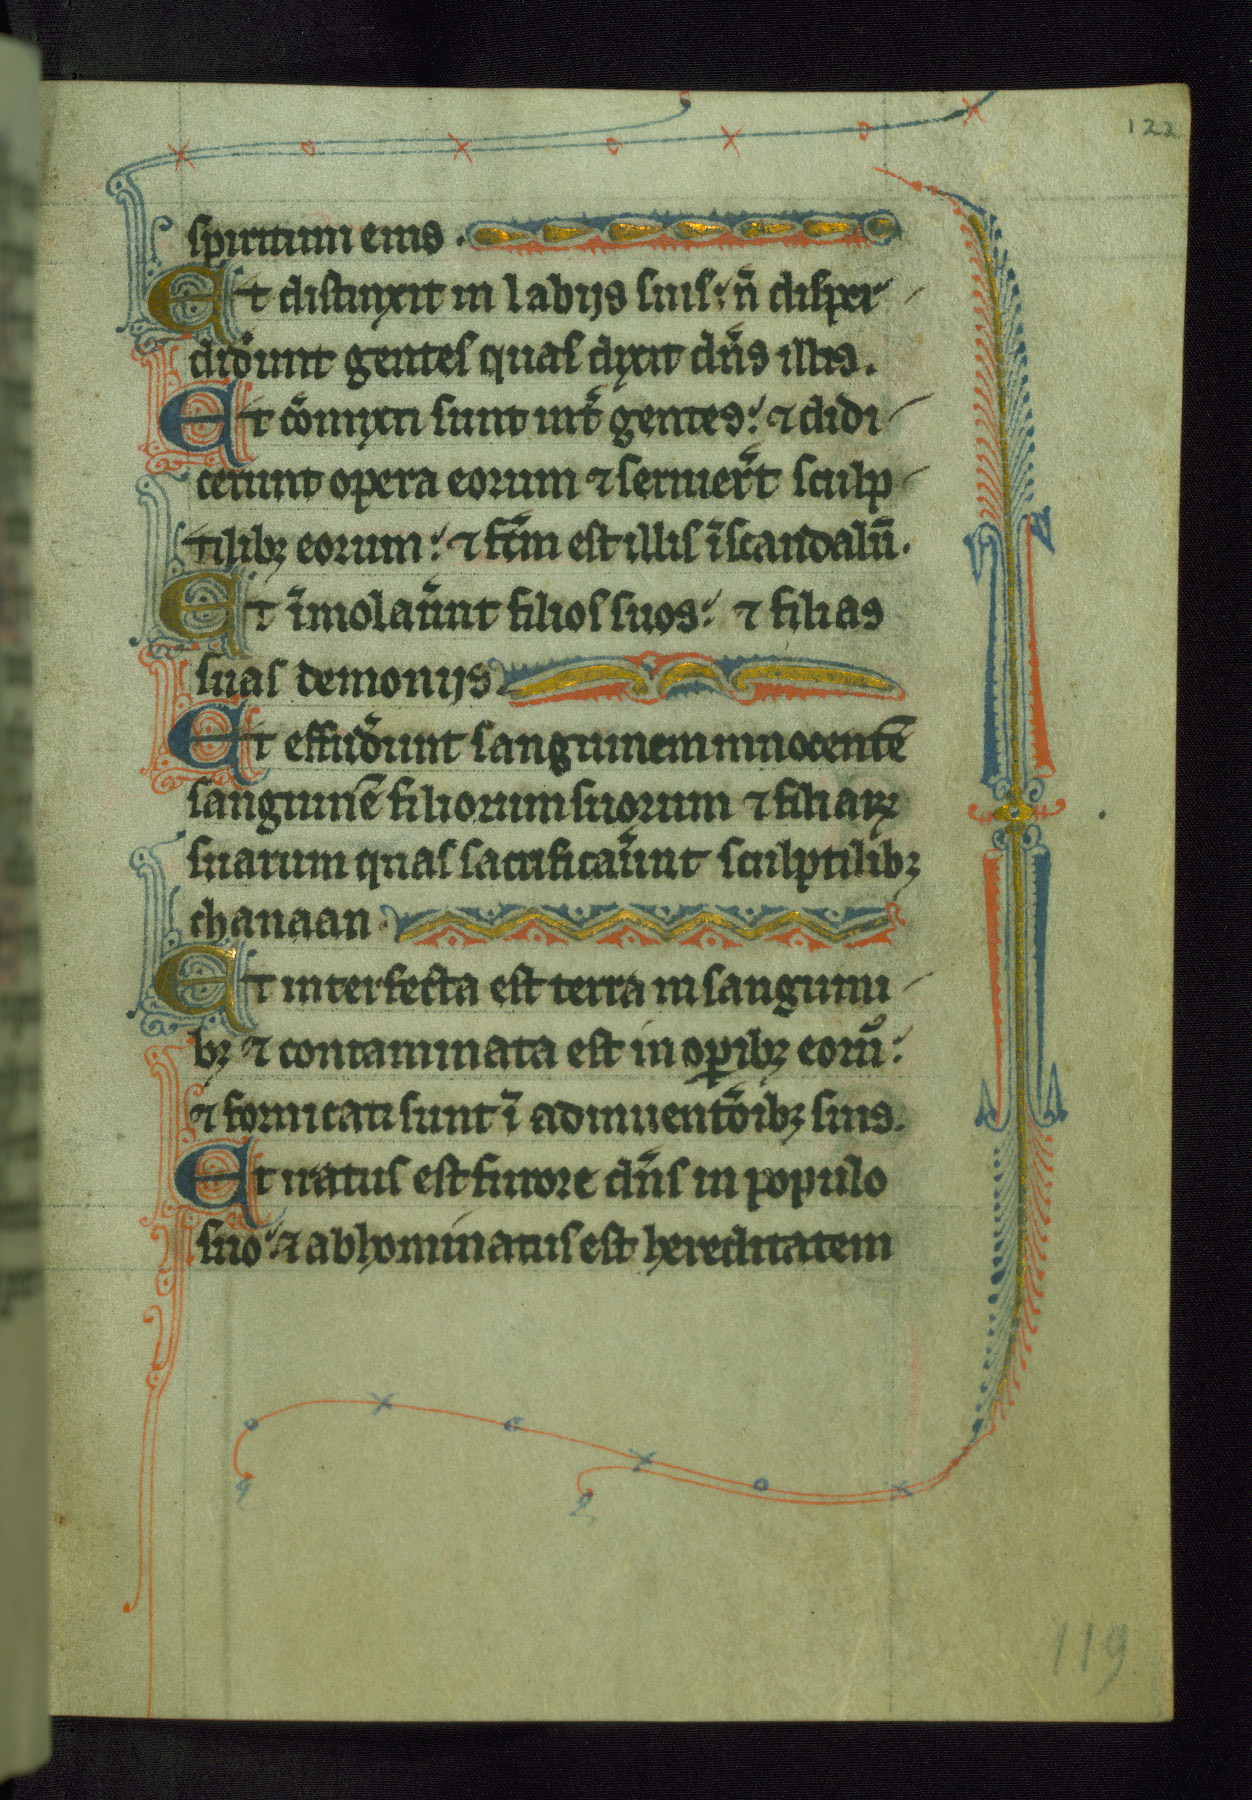 122
spiritum eius .
Et distinxit in labijs suis: n̄ disper
diđunt gentes quas dixit dn̄s illis.
Et cōmixti sunt int̄ gentes: ⁊ didi
cerunt opera eorum ⁊ seruier̄t sculp
tilibꝫ eorum: ⁊ fc̄m est illis ī scandalū.
Et īmolaūnt filios suos: ⁊ filias
suas demonijs
Et effuđunt sanguinem innocentē
sanguinē filiorum suorum ⁊ filiaꝝ
suarum quas sacrificaūnt sculptilibꝫ
chanaan
Et interfecta est terra in sanguini
bꝫ ⁊ contaminata est in oꝑibꝫ eorū:
⁊ fornicati sunt ī adinuentōibꝫ suis.
Et iratus est furore dn̄s in populo
suo: ⁊ abhominatus est hereditatem
119